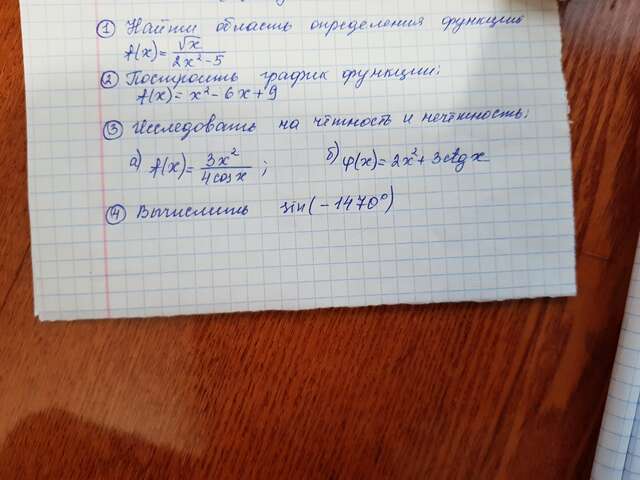 ① Найти область определения функции
f(x) = √x / 2x² - 5
② Построить график функции:
f(x) = x² - 6x + 9
③ Исследовать на чётность и нечётность:
а) f(x) = 3x² / 4cos x ; б) φ(x) = 2x² + 3ctg x
④ Вычислить sin(-1470°)